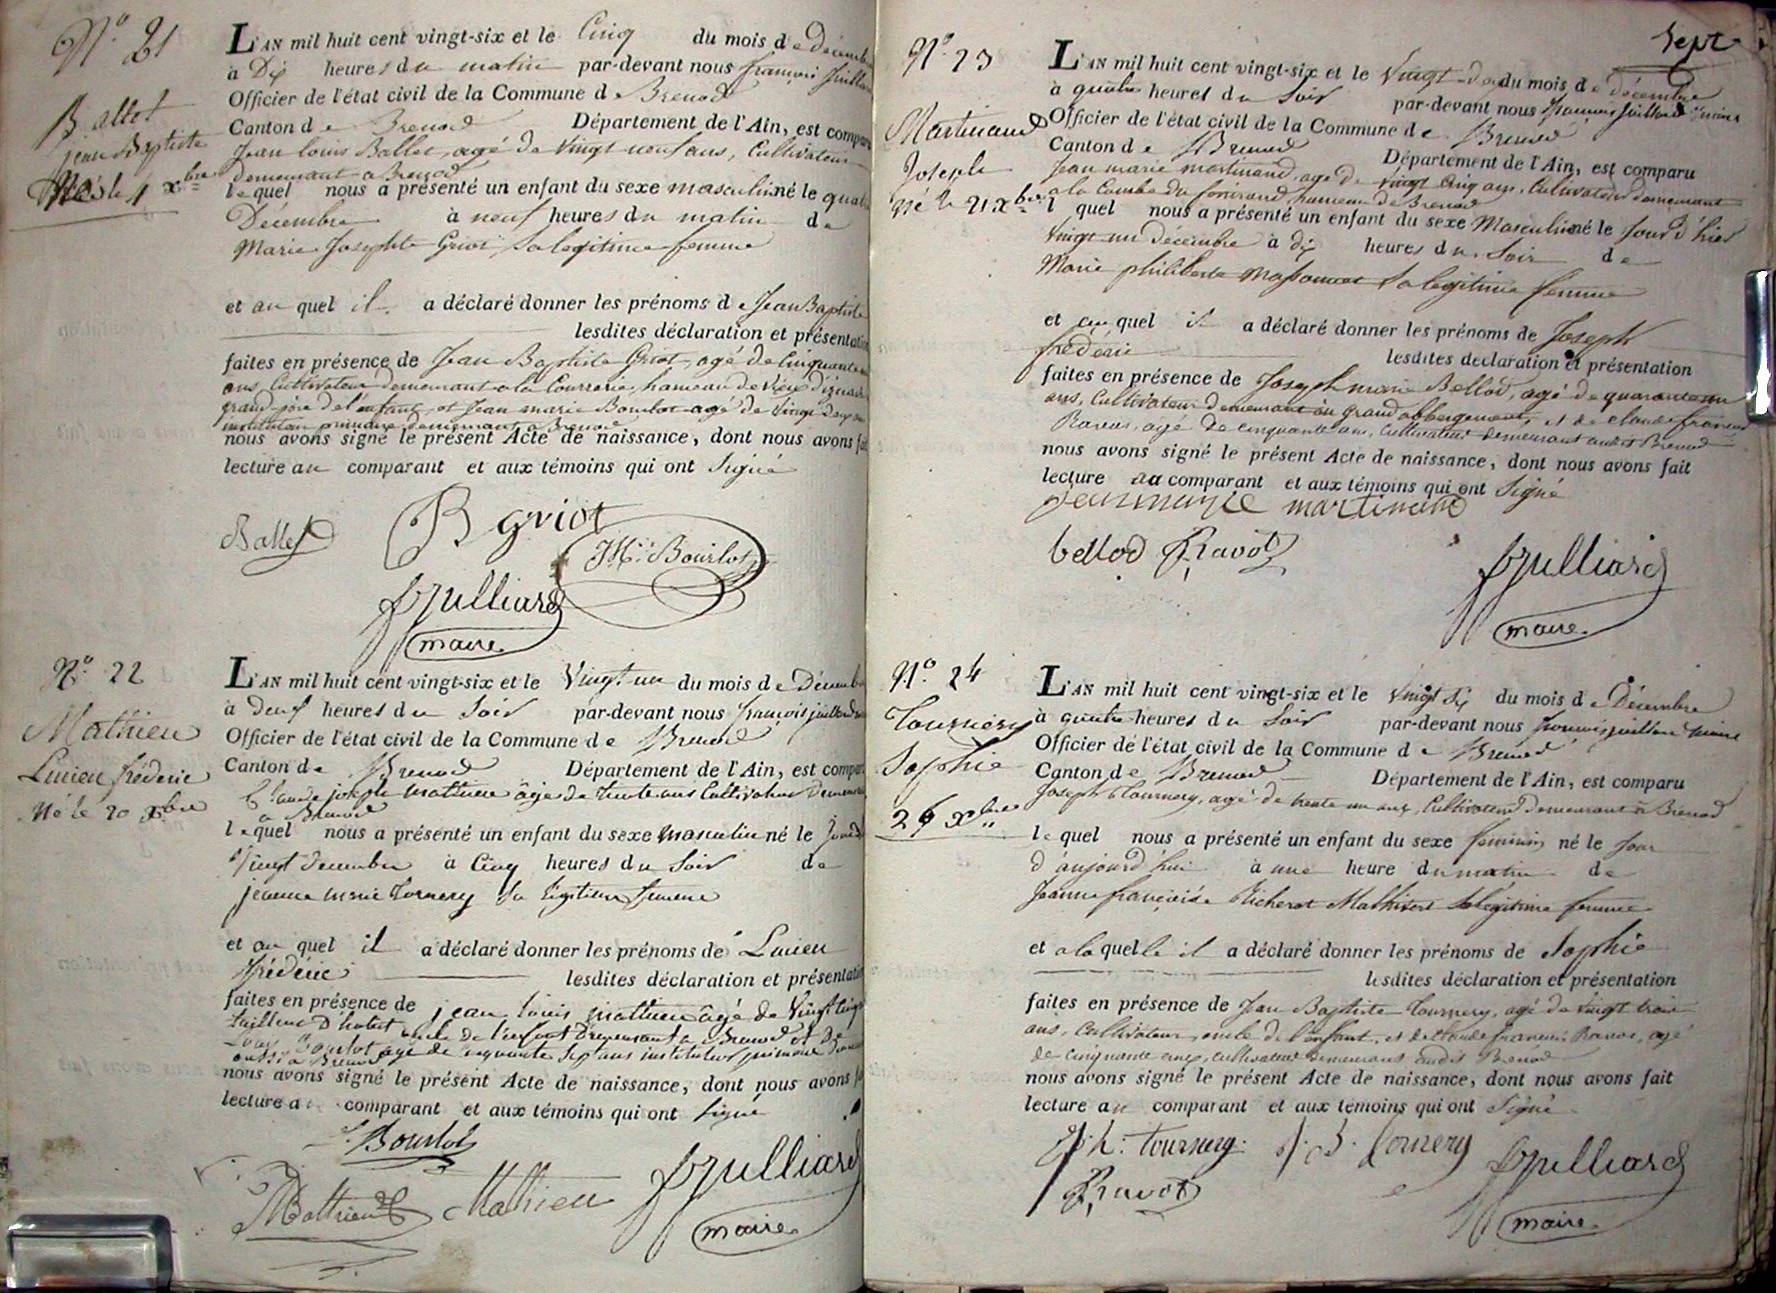 N.º 21
Ballet
jean Baptiste
Né le 4 xbre
L'AN mil huit cent vingt-six et le Cinq du mois de Décembre
à Dix heures du matin par-devant nous françois Juilliard
Officier de l'état civil de la Commune de Brenod
Canton de Brenod Département de l'Ain, est compar
Jean Louis Ballet, agé de Vingt neuf ans, Cultivateur
demeurant a Brenod
lequel nous a présenté un enfant du sexe masculin né le quatre
Décembre à neuf heures du matin de
Marie Josephte Griot, sa legitime femme
et au quel il a déclaré donner les prénoms de Jean Baptiste
lesdites déclaration et présentation
faites en présence de Jean Baptiste Griot, agé de Cinquante
ans, Cultivateur demeurant a la hameau de Vieu d'izenave
grand-père de l'enfant, et Jean marie Bourlot agé de Vingt deux ans
instituteur primaire demeurant a Brenod
nous avons signé le présent Acte de naissance, dont nous avons fait
lecture au comparant et aux témoins qui ont Signé
Ballet B griot
J M. Bourlot
fJulliard
maire
N.º 22
Mathieu
Lucien fréderic
Né le 20 xbre
L'AN mil huit cent vingt-six et le Vingt un du mois de Décembre
à deux heures du Soir par-devant nous françois juilliard
Officier de l'état civil de la Commune de Brenod
Canton de Brenod Département de l'Ain, est compar
Claude joseph mathieu âgé de trente ans Cultivateur demeurant
a Brenod
lequel nous a présenté un enfant du sexe masculin né le jour
Vingt decembre à Cinq heures du Soir de
jeanne marie tornery sa legitime femme
et au quel il a déclaré donner les prénoms de Lucien
fréderic lesdites déclaration et présentation
faites en présence de jean louis mathieu âgé de Vingt cinq
tailleur D'habit oncle de l'enfant Demeurant a Brenod et de
Louis Bourlot agé de cinquante sept ans instituteur primaire Demeurant
aussi a Brenod
nous avons signé le présent Acte de naissance, dont nous avons fa
lecture a comparant et aux témoins qui ont signé
L. Bourlot
Mathieu Mathieu fJulliard
maire
Sept
N.º 23
Martinand
Joseph
Né le 21 Xbre
L'AN mil huit cent vingt-six et le Vingt-deux du mois de décembre
à quatre heures du Soir par-devant nous françois juilliard maire
Officier de l'état civil de la Commune de Brenod
Canton de Brenod Département de l'Ain, est comparu
Jean marie martinand, agé de Vingt Cinq ans, Cultivateur demeurant
a la Combe du hameau de Brenod
l quel nous a présenté un enfant du sexe Masculin né le jour d'hier
Vingt un décembre à dix heures du Soir de
Marie philiberte Massonnet sa legitime femme
et au quel il a déclaré donner les prénoms de Joseph
fréderic lesdites declaration et présentation
faites en présence de Joseph marie Bellod, agé de quarante un
ans, Cultivateur demeurant au grand abbergement, et de claude françois
Ravot, agé de cinquante ans, Cultivateur demeurant audit Brenod
nous avons signé le présent Acte de naissance, dont nous avons fait
lecture au comparant et aux témoins qui ont Signé
jeanmarie martinand
bellod Ravot
fJulliard
maire
N.º 24
Tournery
Sophie
26 xbre
L'AN mil huit cent vingt-six et le Vingt Six du mois de Décembre
à quatre heures du Soir par-devant nous françois juilliard maire
Officier de l'état civil de la Commune de Brenod
Canton de Brenod Département de l'Ain, est comparu
Joseph Tournery, agé de trente un ans, Cultivateur demeurant à Brenod
le quel nous a présenté un enfant du sexe feminin né le Jour
d'aujourd'hui à une heure du matin de
Jeanne françoise Richerot Mathieu sa legitime femme
et a la quelle il a déclaré donner les prénoms de Sophie
lesdites déclaration et présentation
faites en présence de Jean Baptiste Tournery, agé de vingt trois
ans, Cultivateur, oncle de l'enfant, et de Claude francois Ravot, agé
de cinquante ans, cultivateur demeurans audit Brenod
nous avons signé le présent Acte de naissance, dont nous avons fait
lecture au comparant et aux témoins qui ont Signé
Jph. Tournery J. B. tornery fJulliard
Ravot
maire